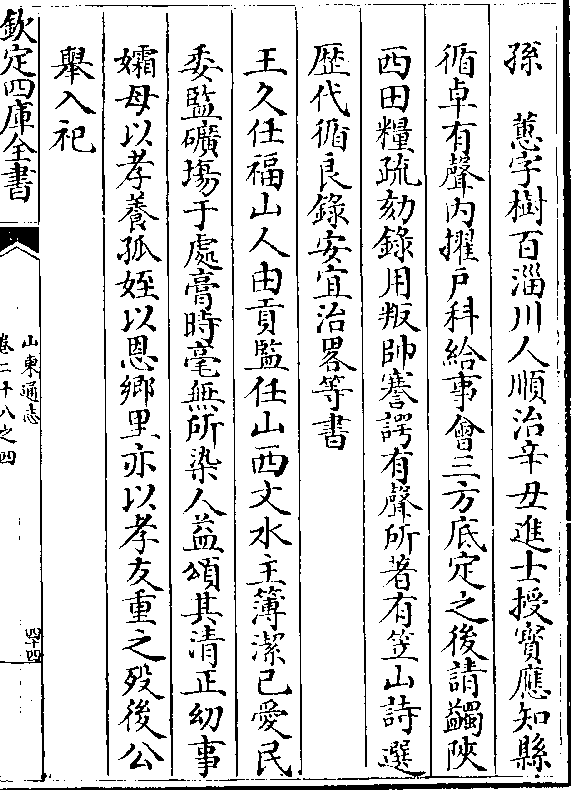 孫　蕙字樹百淄川人順治辛丑進士授寳應知縣
循卓有聲内擢戶科給事會三方底定之後請蠲陜
西田糧疏劾錄用叛帥謇諤有聲所著有笠山詩選
歴代循良錄安宜治畧等書
王久任福山人由貢監任山西文水主簿潔己愛民
委監礦塲于處膏時毫無所染人益頌其清正幼事
孀母以孝養孤姪以恩鄉里亦以孝友重之殁後公
舉入祀
欽定四庫全書
山東通志
卷二十八之四
四十四